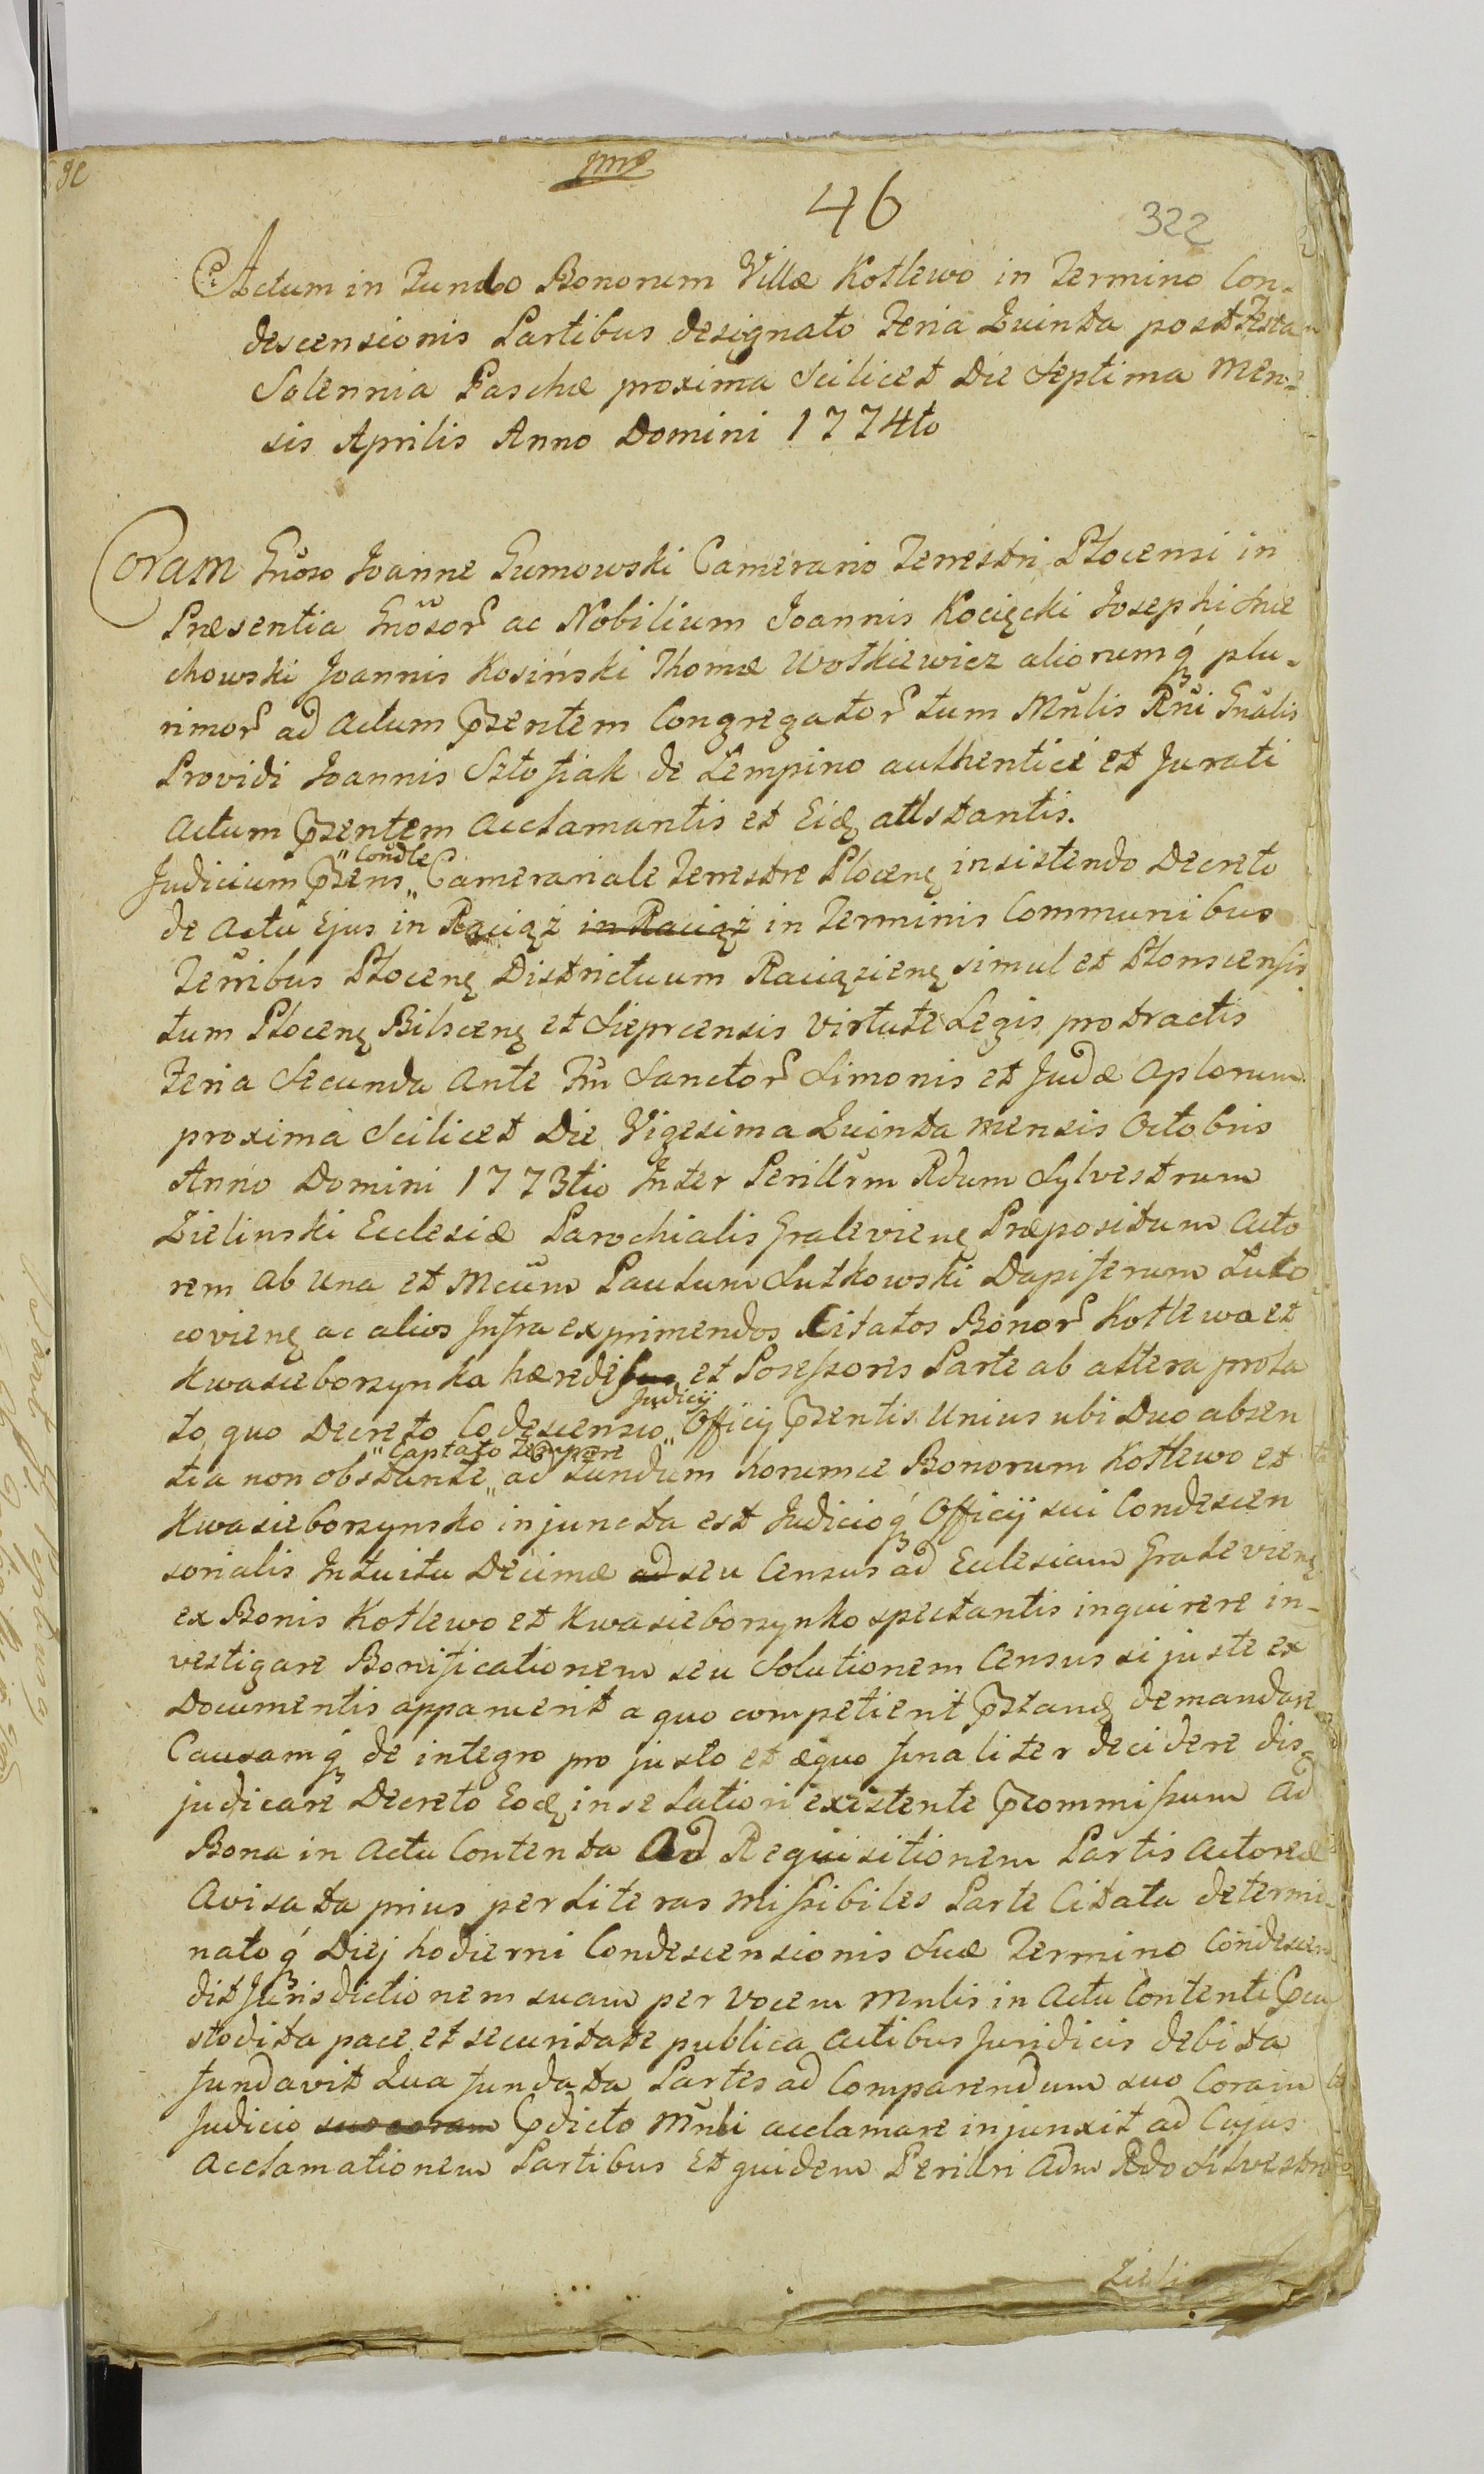 46
322
Actum in Fundo Bonorum Villæ Kotlewo in Termino Con-
descensionis Partibus designato Feria Quinta post Festa
Solennia Paschæ proxima Scilicet Die Septima Men-
sis Aprilis Anno Domini 1774to
Coram Gnöso Joanne Gumowski Camerario Terrestri Plocensi in
Præsentia Gnösor ac Nobilium Joannis Kocięcki Josephi
chowski Joannis Kosiński Thomæ Wotkiewicz aliorumq plu-
rimor ad Actum pzentem Congregator tum Mnlis Rni Gnalis
Providi Joannis Sztofiak de Lempino authentici et Jurati
Actum pzentem Acclamantis et Eidę attstantis.
Judicium pzens "Condle" Camerariale Terrestre Plocenę insistendo Decreto
de Actu Ejus in Raciąż in Raciąż in Terminis Communibus
Terribus Plocenę Districtuum Raciązienę simul et Plonscensis
tum Plocenę Bilscenę et Sieprcensis virtute Legis protractis
Feria Secunda Ante Fm Sanctor Simonis et Judæ Aplorum
proxima Scilicet Die Vigesima Quinta mensis Octobris
Anno Domini 1773tio Inter Perillrm Rdum Sylvestrum
Zielinski Ecclesiæ Parochialis Gralevienę Præpositum Acto
rem ab una et Mcum Paulum Sutkowski Dapiferum Luto
covienę ac alios Infra exprimendos Citatos Bonor Kotlewo et
Kwasieborzynka hæredibus et Posessores Parte ab altera prola
to quo Decreto Codescensio "Judicij" Officij pzentis Unius ubi Duo absen
tia non obstante "Captato Tempore" ad Fundum horumce Bonorum Kotlewo et
Kwasieborzynsko injuncta est Judicioq Officij sui Condescen
sorialis Intuitu Decimæ ad seu Census ad Ecclesiam Gralevienę
ex Bonis Kotlewo et Kwasieborzynko spectantis inquirere in-
vestigare Bonificationem seu Solutionem Census si juste ex
Documentis apparuerit a quo competierit pstandę demandare
Causamq de integro pro justo et æquo finaliter decidere dis-
judicare Decreto Eodę in se latiori existente pcommissum Ad
Bona in Actu Contenta Ad Requisitionem Partis Actoreæ
Avisata prius per Literas Missibiles Parte Citata determi-
natoq Diej hodierni Condescensionis Suæ Termino Condescen
dit Jurisdictionem suam per Vocem Mnlis in Actu Contenti pcu
stodita pace et securitate publica actibus Juridicis debita
fundavit Qua fundata Partes ad Comparendum suo Coram
Judicio suo coram pdicto Mnli acclamare injunxit ad Cujus
Acclamationem Partibus Et quidem Perillri Adm Rdo Silvestro